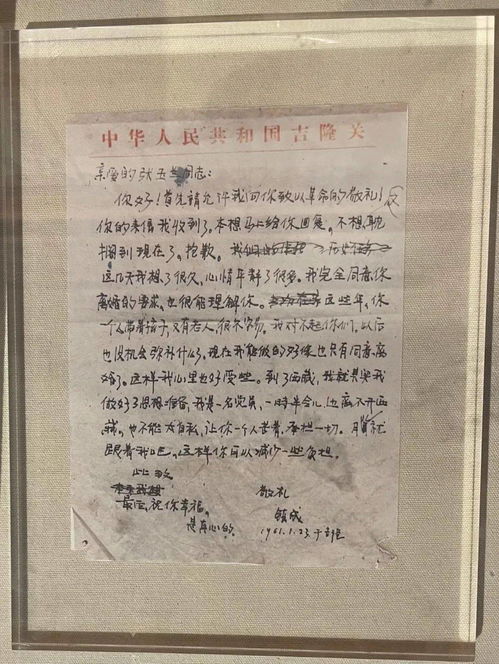 中华人民共和国吉隆关
亲爱的张玉兰同志：
你好！首先请允许我向你致以革命的敬礼！
你的来信我收到了。本想马上给你回复。不想，耽
搁到现在了。抱歉。
这几天我想了很久，心情平静了很多。我完全同意你
离婚的要求，也很能理解你。这些年，你
一个人带着孩子，又有老人，很不容易。我对不起你们，以后
也没机会弥补什么了。现在我能做的好像也只有同意离
婚了。这样我心里也好受些。到了西藏，我就
做好了思想准备，我是一名党员，一时半会儿，也离不开西
藏。也不能太自私，让你一个人苦着，承担一切。
跟着我吧。这样你可以减少一些负担。
此致
敬礼
最后，祝你幸福。
是真心的。
1961.1.23.于吉隆